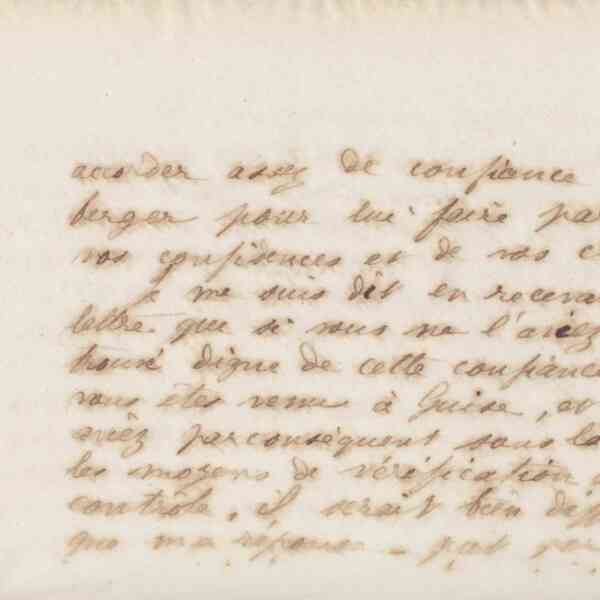 accorder assez de confiance
berger pour lui faire par
vos confidences et de vos c
Je me suis dit en receva
lettre que si vous ne l'aviez
trouvé digne de cette confiance
vous êtes venu à Guise, et
aviez par conséquent sous la
les moyens de vérification
contrôle, il serait bien diff
que ma réponse